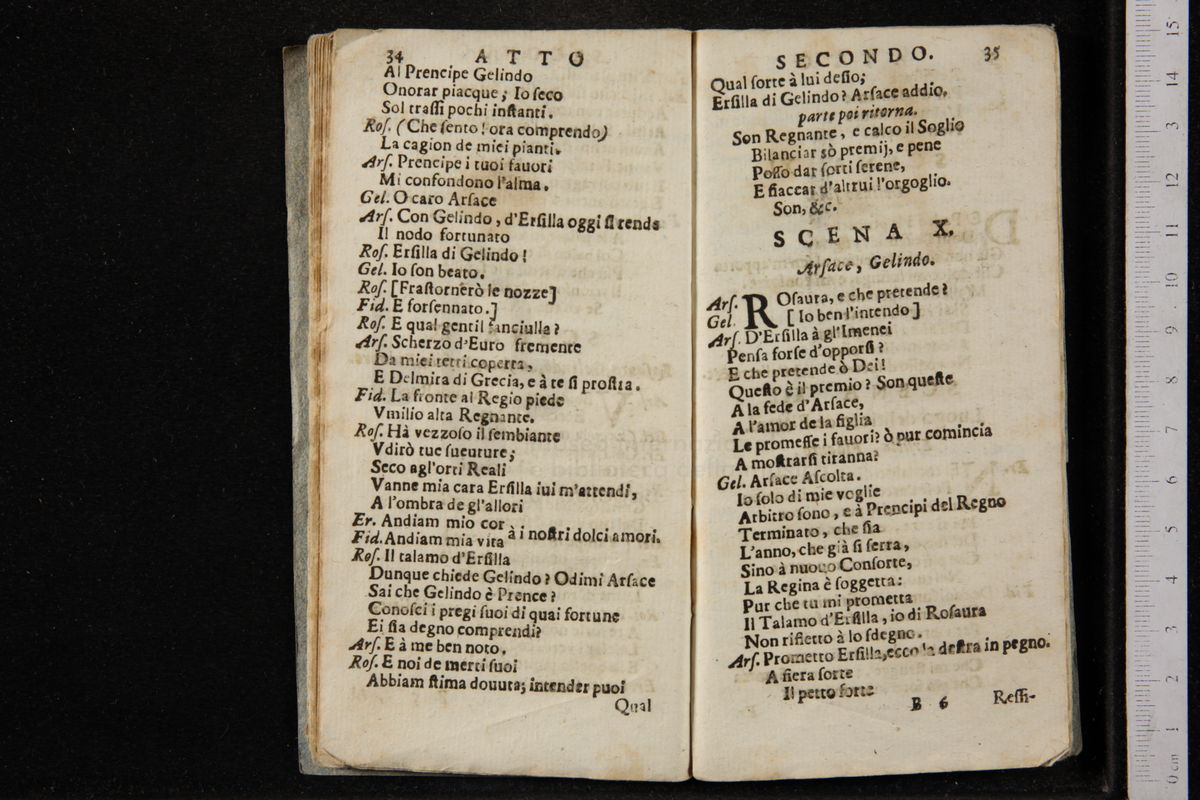 34 ATTO
Al Prencipe Gelindo
Onorar piacque; Io ſeco
Sol traſſi pochi inſtanti.
Roſ. (Che ſento! ora comprendo)
La cagion de miei pianti.
Arſ. Prencipe i tuoi fauori
Mi confondono l'alma.
Gel. O caro Arſace
Arſ. Con Gelindo, d'Erſilla oggi ſi renda
Il nodo fortunato
Roſ. Erſilla di Gelindo!
Gel. Io ſon beato.
Roſ. [Fraſtornerò le nozze]
Fid. E forſennato.]
Roſ. E qual gentil fanciulla?
Arſ. Scherzo d'Euro fremente
Da miei tetti coperta,
E Delmira di Grecia, e à te ſi proſtra.
Fid. La fronte al Regio piede
Vmilio alta Regnante.
Roſ. Hà vezzoſo il ſembiante
Vdirò tue ſuenture;
Seco agl'orti Reali
Vanne mia cara Erſilla iui m'attendi,
A l'ombra de gl'allori
Er. Andiam mio cor
Fid. Andiam mia vita à i noſtri dolci amori.
Roſ. Il talamo d'Erſilla
Dunque chiede Gelindo? Odimi Arſace
Sai che Gelindo è Prence?
Conoſci i pregi ſuoi di quai fortune
Ei ſia degno comprendi?
Arſ. E à me ben noto.
Roſ. E noi de merti ſuoi
Abbiam ſtima douuta; intender puoi
Qual
SECONDO. 35
Qual ſorte à lui deſio;
Erſilla di Gelindo? Arſace addio.
parte poi ritorna.
Son Regnante, e calco il Soglio
Bilanciar sò premij, e pene
Poſſo dar ſorti ſerene,
E fiaccar d'altrui l'orgoglio.
Son, &c.
SCENA X.
Arſace, Gelindo.
Arſ. ROſaura, e che pretende?
Gel. [Io ben l'intendo]
Arſ. D'Erſilla à gl'Imenei
Penſa forſe d'opporſi?
E che pretende ò Dei!
Queſto è il premio? Son queſte
A la fede d'Arſace,
A l'amor de la figlia
Le promeſſe i fauori? ò pur comincia
A moſtrarſi tiranna?
Gel. Arſace Aſcolta.
Io ſolo di mie voglie
Arbitro ſono, e à Prencipi del Regno
Terminato, che ſia
L'anno, che già ſi ſerra,
Sino à nuouo Conſorte,
La Regina è ſoggetta:
Pur che tu mi prometta
Il Talamo d'Erſilla, io di Roſaura
Non rifletto à lo ſdegno.
Arſ. Prometto Erſilla, ecco la deſtra in pegno.
A fiera ſorte
Il petto forte
B 6 Reſſi-
0 cm 1 2 3 4 5 6 7 8 9 10 11 12 13 14 15